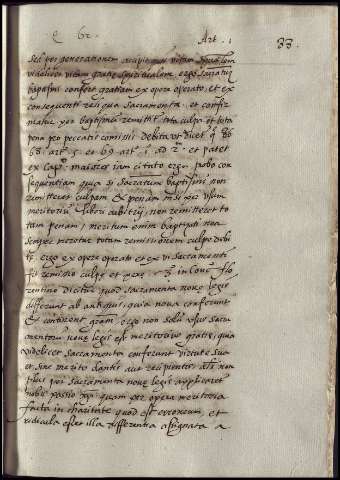 Q 62. Art. 1 33.
sed per generationem accipit quis vitam spiritualem
videlicet vitam gratiæ spiritualem, ergo sacratu
baptismi confert gratiam ex opere operato, et ex
consequenti reliqua sacramenta. et confir
matur per baptismu remittit tota culpa, et tota
pena pro peccatis comissis debita, ut dicet q. 68
68. art. 5. et 69 art. 1 ad 2. et patet
ex Cap. maiores iam citato ergo probo con
sequentiam quia si sacratum baptismi non
remitteret culpam & penam nisi per usum
meritoriu liberi arbitrij, non remitteret to
tam penam, meritum enim baptizati non
semper meretur totam remissionem culpæ debi
ta, ergo ex opere operato et ex vi sacramenti
fit remissio culpæ et penæ. 3 in Conc. flo
rentino dicitur quod sacramenta novæ legis
differunt ab antiquis, quia nova conferunt
& continent gram, ergo non solu usus sacra
mentoru novæ legis est meritorius gratiæ, qua
videlicet sacramenta conferunt virtute sua
et sine merito dantis aut recipientis. alis non
plus per sacramenta novæ legis applicaret
nobis passio xpi quam per opera meritoria
facta in charitate quod est erroneum, et
ridicula esset illa differentia assignata a